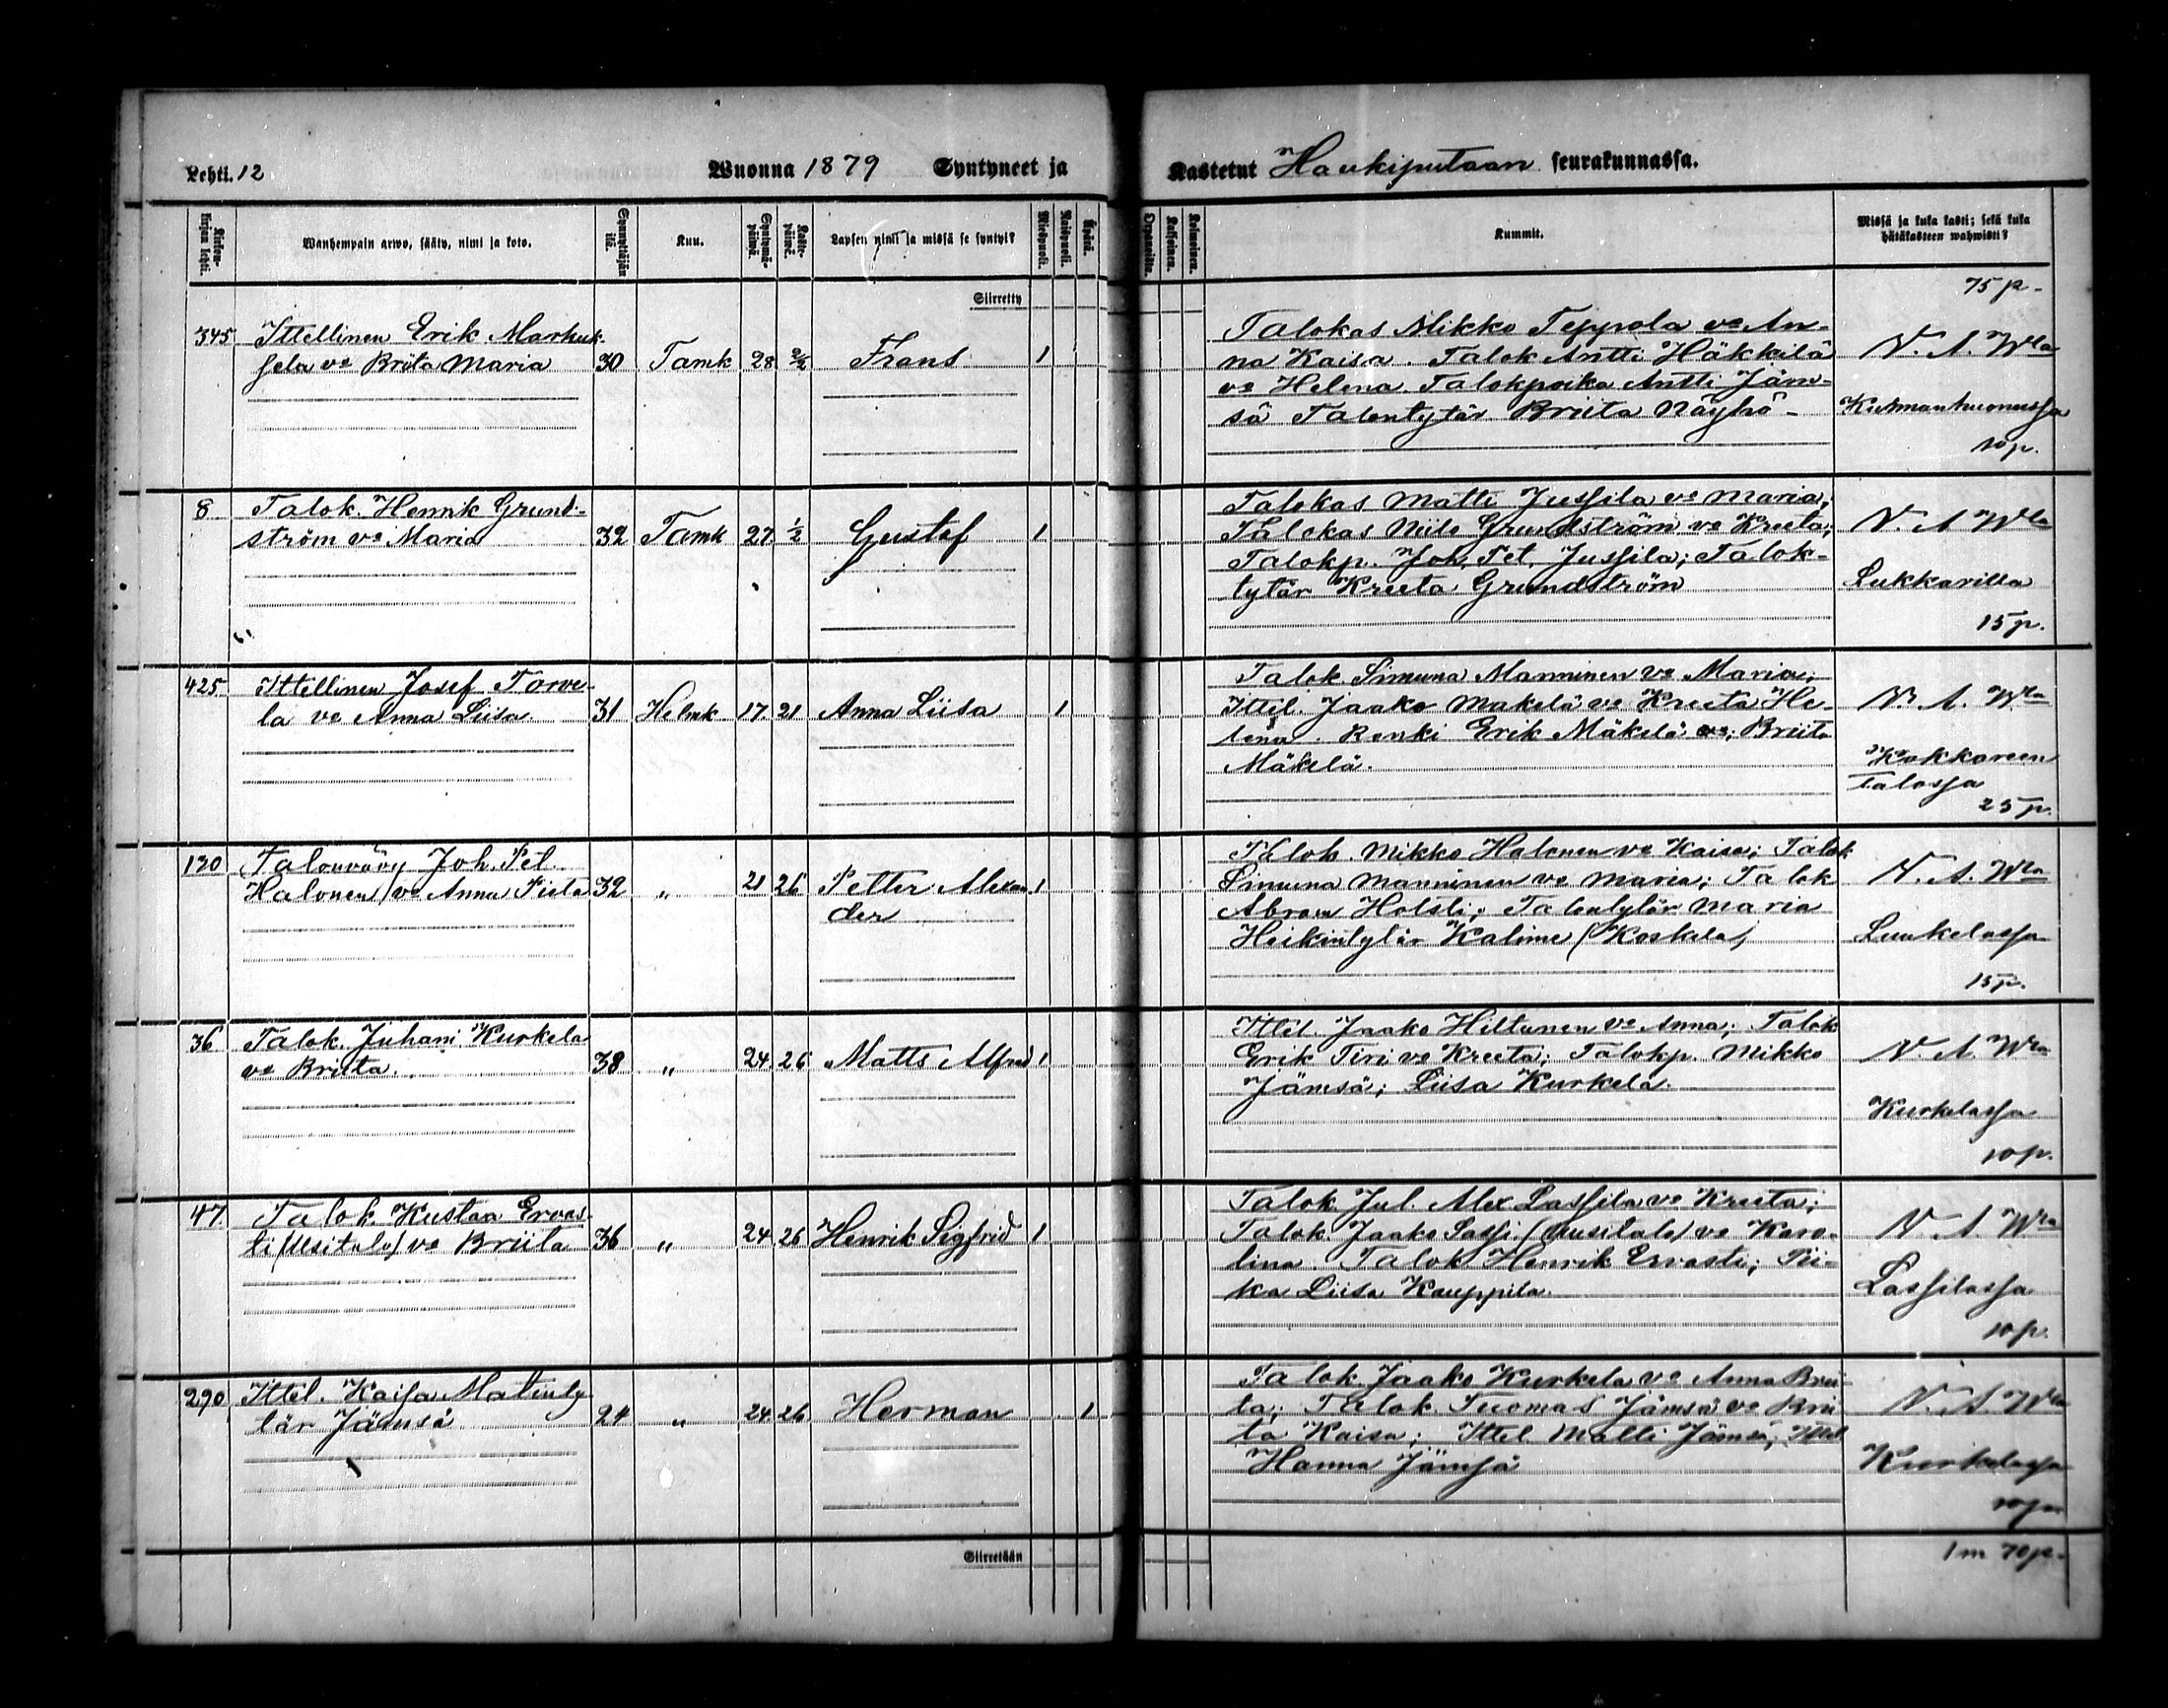 Lehti. 12
Wuonna 1879 Syntyneet ja
Kastetut Haukiputaan seurakunnassa.
Kirkonkirjan lehti.
Wanhempain arwo, sääty, nimi ja koto.
Synnyttäjän ikä.
Kuu.
Syntymäpäiwä.
Kastepäiwä.
Lapsen nimi ja missä se syntyi?
Miespuoli.
Naispuoli.
Äpärä.
Kaksoinen.
Kolmoinen.
Kummit.
Missä ja kuka kasti; sekä kuka
hätäkasteen wahwisti?
Siirretty
75 p.
345 Ittellinen Erik Markuk-
sela vo Briita Maria 30 Tamk 28 2/2 Frans 1
Talokas Mikko Teppola vo An-
na Kaisa. Talok Antti Häkkilä
vo Helena Talokpoika Antti Jäm-
sä Talontytär Briita Näyhö
N. A. Wla
10 p.
8 Talok. Henrik Grund-
ström vo Maria 32 Tamk 27 1/2 Gustaf 1
Talokas Matti Jussila vo Maria;
Talokas Niilo Grundström vo Kreeta;
Talokp. Joh. Pet. Jussila; Talok-
tytär Kreeta Grundström
N. A Wla
Lukkarilla
15 p.
425 Ittellinen Josef Torve-
la vo Anna Liisa 31 Helmk 17 21 Anna Liisa 1
Talok. Simuna Manninen vo Maria;
Ittel. Jaako Makelä vo Kreeta He-
lena. Renki Erik Mäkelä; Briita
Mäkelä.
N. A. Wla
Kokkareen
Talossa
25 p.
130 Talonvävy Joh. Pet.
Halonen vo Anna Pieta 32 „ 21 26 Petter Alexan- 1
der
Talok. Mikko Halonen vo Kaisa; Talok
Simuna Manninen vo Maria; Talok
Abram Holsti; Talontytär Maria
Heikintytär Kalime (Koskela)
N. A. Wla
Luukelassa
15 p.
36 Talok. Juhani Kurkela
vo Briita. 38 „ 24 26 Matts Alfred 1
Ittel. Jaako Hiltunen vo Anna; Talok
Erik Tiri vo Kreeta; Talokp. Mikko
Jämsä; Liisa Kurkela.
N. A. Wla
Kurkelassa
10 p.
47 Talok. Kustaa Ervas-
ti (Uusitalo) vo Briita 36 „ 24 26 Henrik Sigfrid 1
Talok. Jul. Alex Lassila vo Kreeta;
Talok. Jaako Sassi (Uusitalo) vo Karo-
lina. Talok Henrik Ervasti; Pii-
ka Liisa Kauppila.
N. A. Wla
Lassilassa
10 p.
290 Ittel. Kaisa Matinty-
tär Jämsä 24 „ 24 26 Herman 1
Talok. Jaako Kurkela vo Anna Brii-
ta; Talok. Tuomas Jämsä vo Brii-
ta Kaisa; Ittel. Matti Jämsä; Ittel
Hanna Jämsä
N. A. Wla
Kurkelassa
10 p.
Siirretään
1 m 70 p.